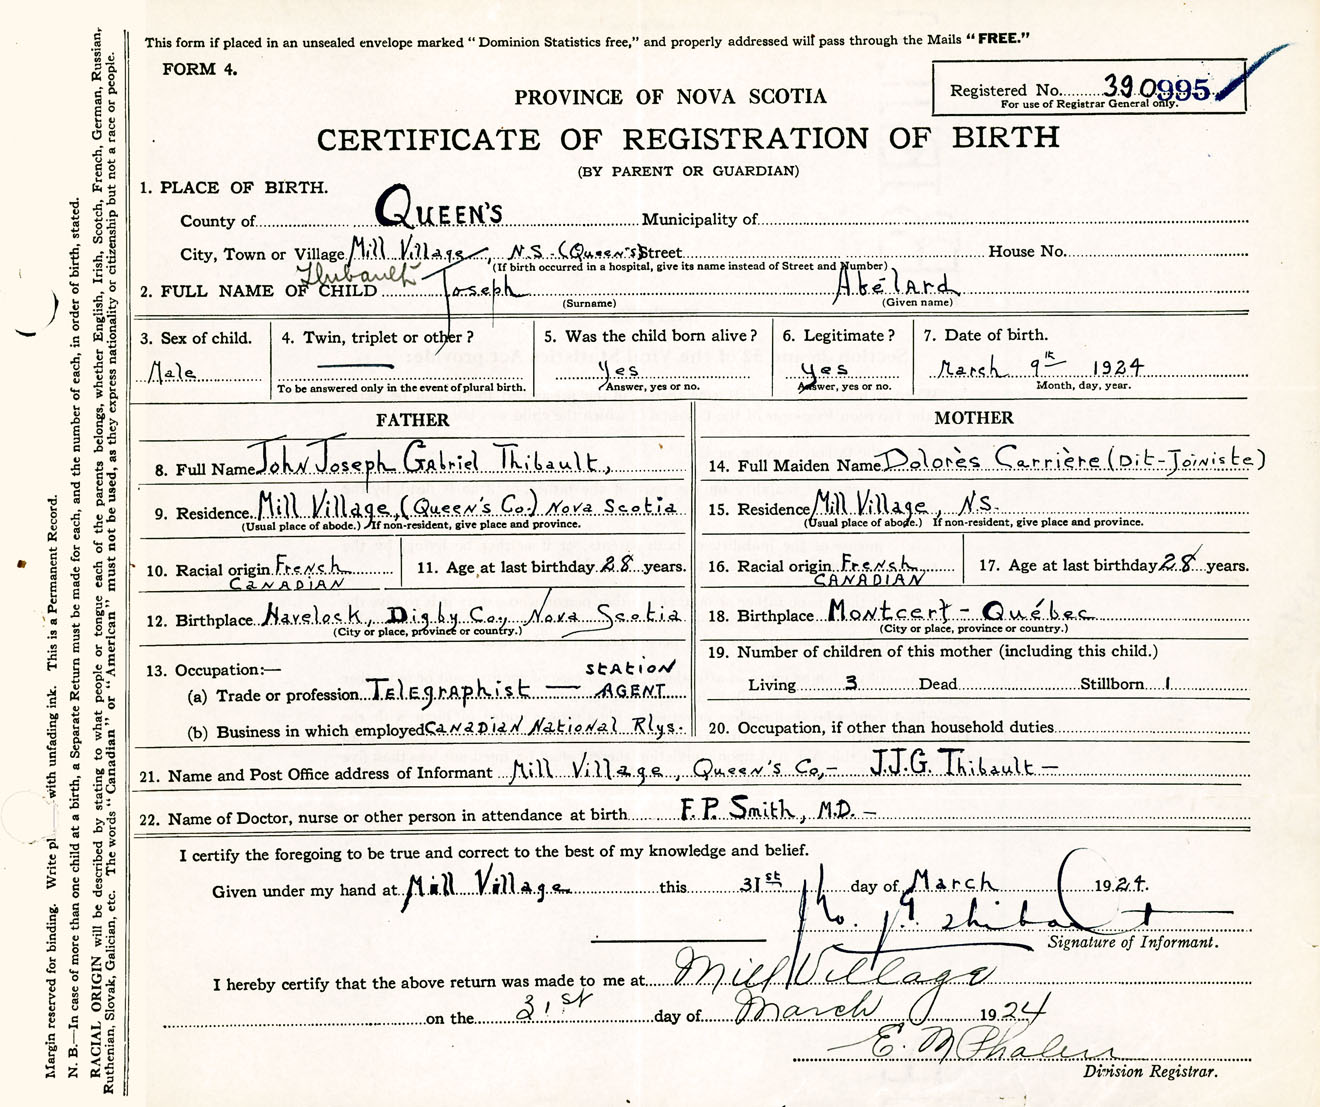 This form if placed in an unsealed envelope marked “Dominion Statistics free,” and properly addressed will pass through the Mails “FREE.”
FORM 4.
Registered No. 390995
For use of Registrar General only.
PROVINCE OF NOVA SCOTIA
CERTIFICATE OF REGISTRATION OF BIRTH
(BY PARENT OR GUARDIAN)
1. PLACE OF BIRTH.
County of QUEEN'S Municipality of
City, Town or Village Mill Village, N.S. (Queen's) Street House No.
(If birth occurred in a hospital, give its name instead of Street and Number)
Thibault
2. FULL NAME OF CHILD Joseph Abélard
(Surname) (Given name)
3. Sex of child. 4. Twin, triplet or other? 5. Was the child born alive? 6. Legitimate? 7. Date of birth.
Male — Yes yes March 9th 1924
To be answered only in the event of plural birth. Answer, yes or no. Answer, yes or no. Month, day, year.
FATHER MOTHER
8. Full Name John Joseph Gabriel Thibault, 14. Full Maiden Name Dolorès Carrière (Dit-Joiniste)
9. Residence Mill Village, (Queen's Co.) Nova Scotia 15. Residence Mill Village, N.S.
(Usual place of abode.) If non-resident, give place and province. (Usual place of abode.) If non-resident, give place and province.
10. Racial origin French CANADIAN 11. Age at last birthday 28 years. 16. Racial origin French CANADIAN 17. Age at last birthday 28 years.
12. Birthplace Havelock, Digby Co., Nova Scotia 18. Birthplace Montcerf - Québec
(City or place, province or country.) (City or place, province or country.)
13. Occupation:— 19. Number of children of this mother (including this child.)
(a) Trade or profession Telegraphist — STATION AGENT Living 3 Dead Stillborn 1
(b) Business in which employed Canadian National Rlys. 20. Occupation, if other than household duties
21. Name and Post Office address of Informant Mill Village, Queen's Co,- J.J.G. Thibault —
22. Name of Doctor, nurse or other person in attendance at birth F.P. Smith, M.D. —
I certify the foregoing to be true and correct to the best of my knowledge and belief.
Given under my hand at Mill Village this 31st day of March 1924.
Jno. J. G. Thibault
Signature of Informant.
I hereby certify that the above return was made to me at Mill Village
on the 31st day of March 1924
E. M Phalen
Division Registrar.
Margin reserved for binding. Write pl with unfading ink. This is a Permanent Record.
N. B.—In case of more than one child at a birth, a Separate Return must be made for each, and the number of each, in order of birth, stated.
RACIAL ORIGIN will be described by stating to what people or tongue each of the parents belongs, whether English, Irish, Scotch, French, German, Russian,
Ruthenian, Slovak, Galician, etc. The words “Canadian” or “American” must not be used, as they express nationality or citizenship but not a race or people.